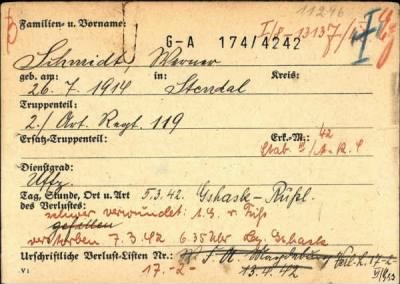 11246
Familien- u. Vorname:
G-A 174/4242
I/8-13137/
Schmidt, Werner
geb. am: in: Kreis:
26. 7. 1914 Stendal
Truppenteil:
2./ Art. Regt. 119
Ersatz-Truppenteil: Erk.-M.: 42
Stab
Dienstgrad:
Uffz.
Tag, Stunde, Ort u. Art 5.3.42. Gshask-Rußl.
des Verlustes: schwer verwundet:
gefallen
verstorben 7.3.42 6.35 Uhr Gshask
Urschriftliche Verlust-Listen Nr.: 
17.-2- 13.4.42
V I